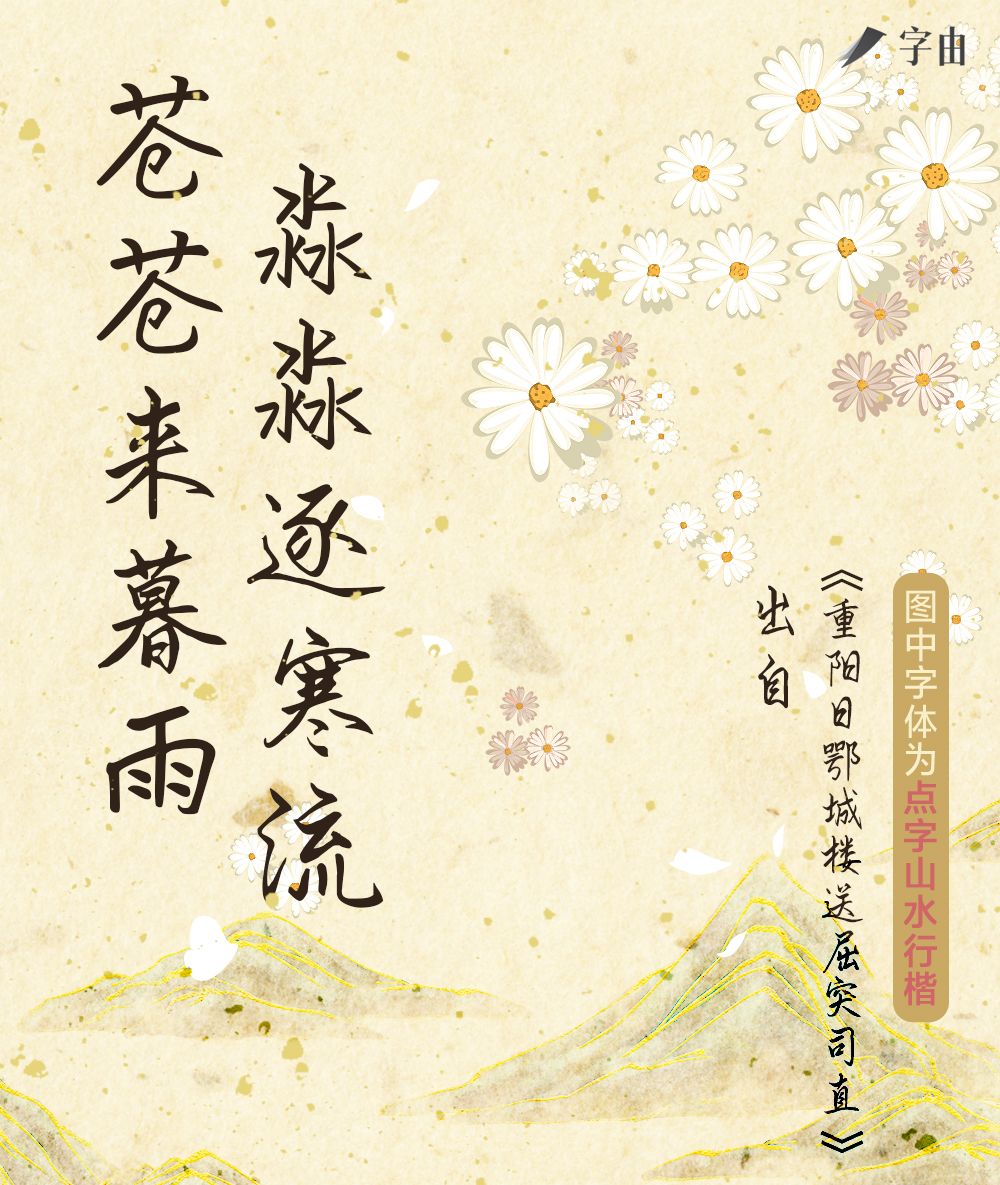 字由
苍苍来暮雨
淼淼逐寒流
出自
《重阳日鄂城楼送屈突司直》
图中字体为点字山水行楷